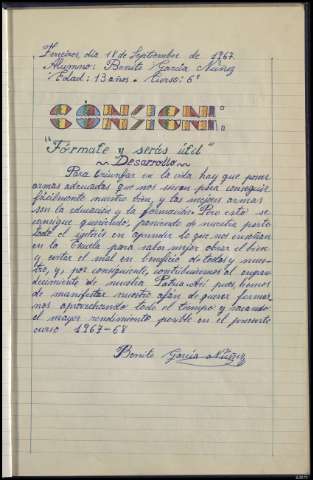 Ferreiros, día 18 de Septiembre de 1967
Alumno: Benito García Núñez
Edad: 13 años. Curso: 6º
CONSIGNA:
"Fórmate y serás útil"
~ Desarrollo ~
Para triunfar en la vida hay que poner
armas adecuadas que nos sirvan para conseguir
fácilmente nuestro bien, y las mejores armas
son la educación y la formación. Pero esto se
consigue queriendo, poniendo de nuestra parte
todo el interés en aprender lo que nos enseñan
en la Escuela para saber mejor obrar el bien
y evitar el mal en beneficio de todos y nues-
tro, y, por consiguiente, contribuiremos al engran-
decimiento de nuestra Patria. Así pues, hemos
de manifestar nuestro afán de querer formar
nos aprovechando todo el tiempo y sacando
el mayor rendimiento posible en el presente
curso 1967-68
Benito García Núñez